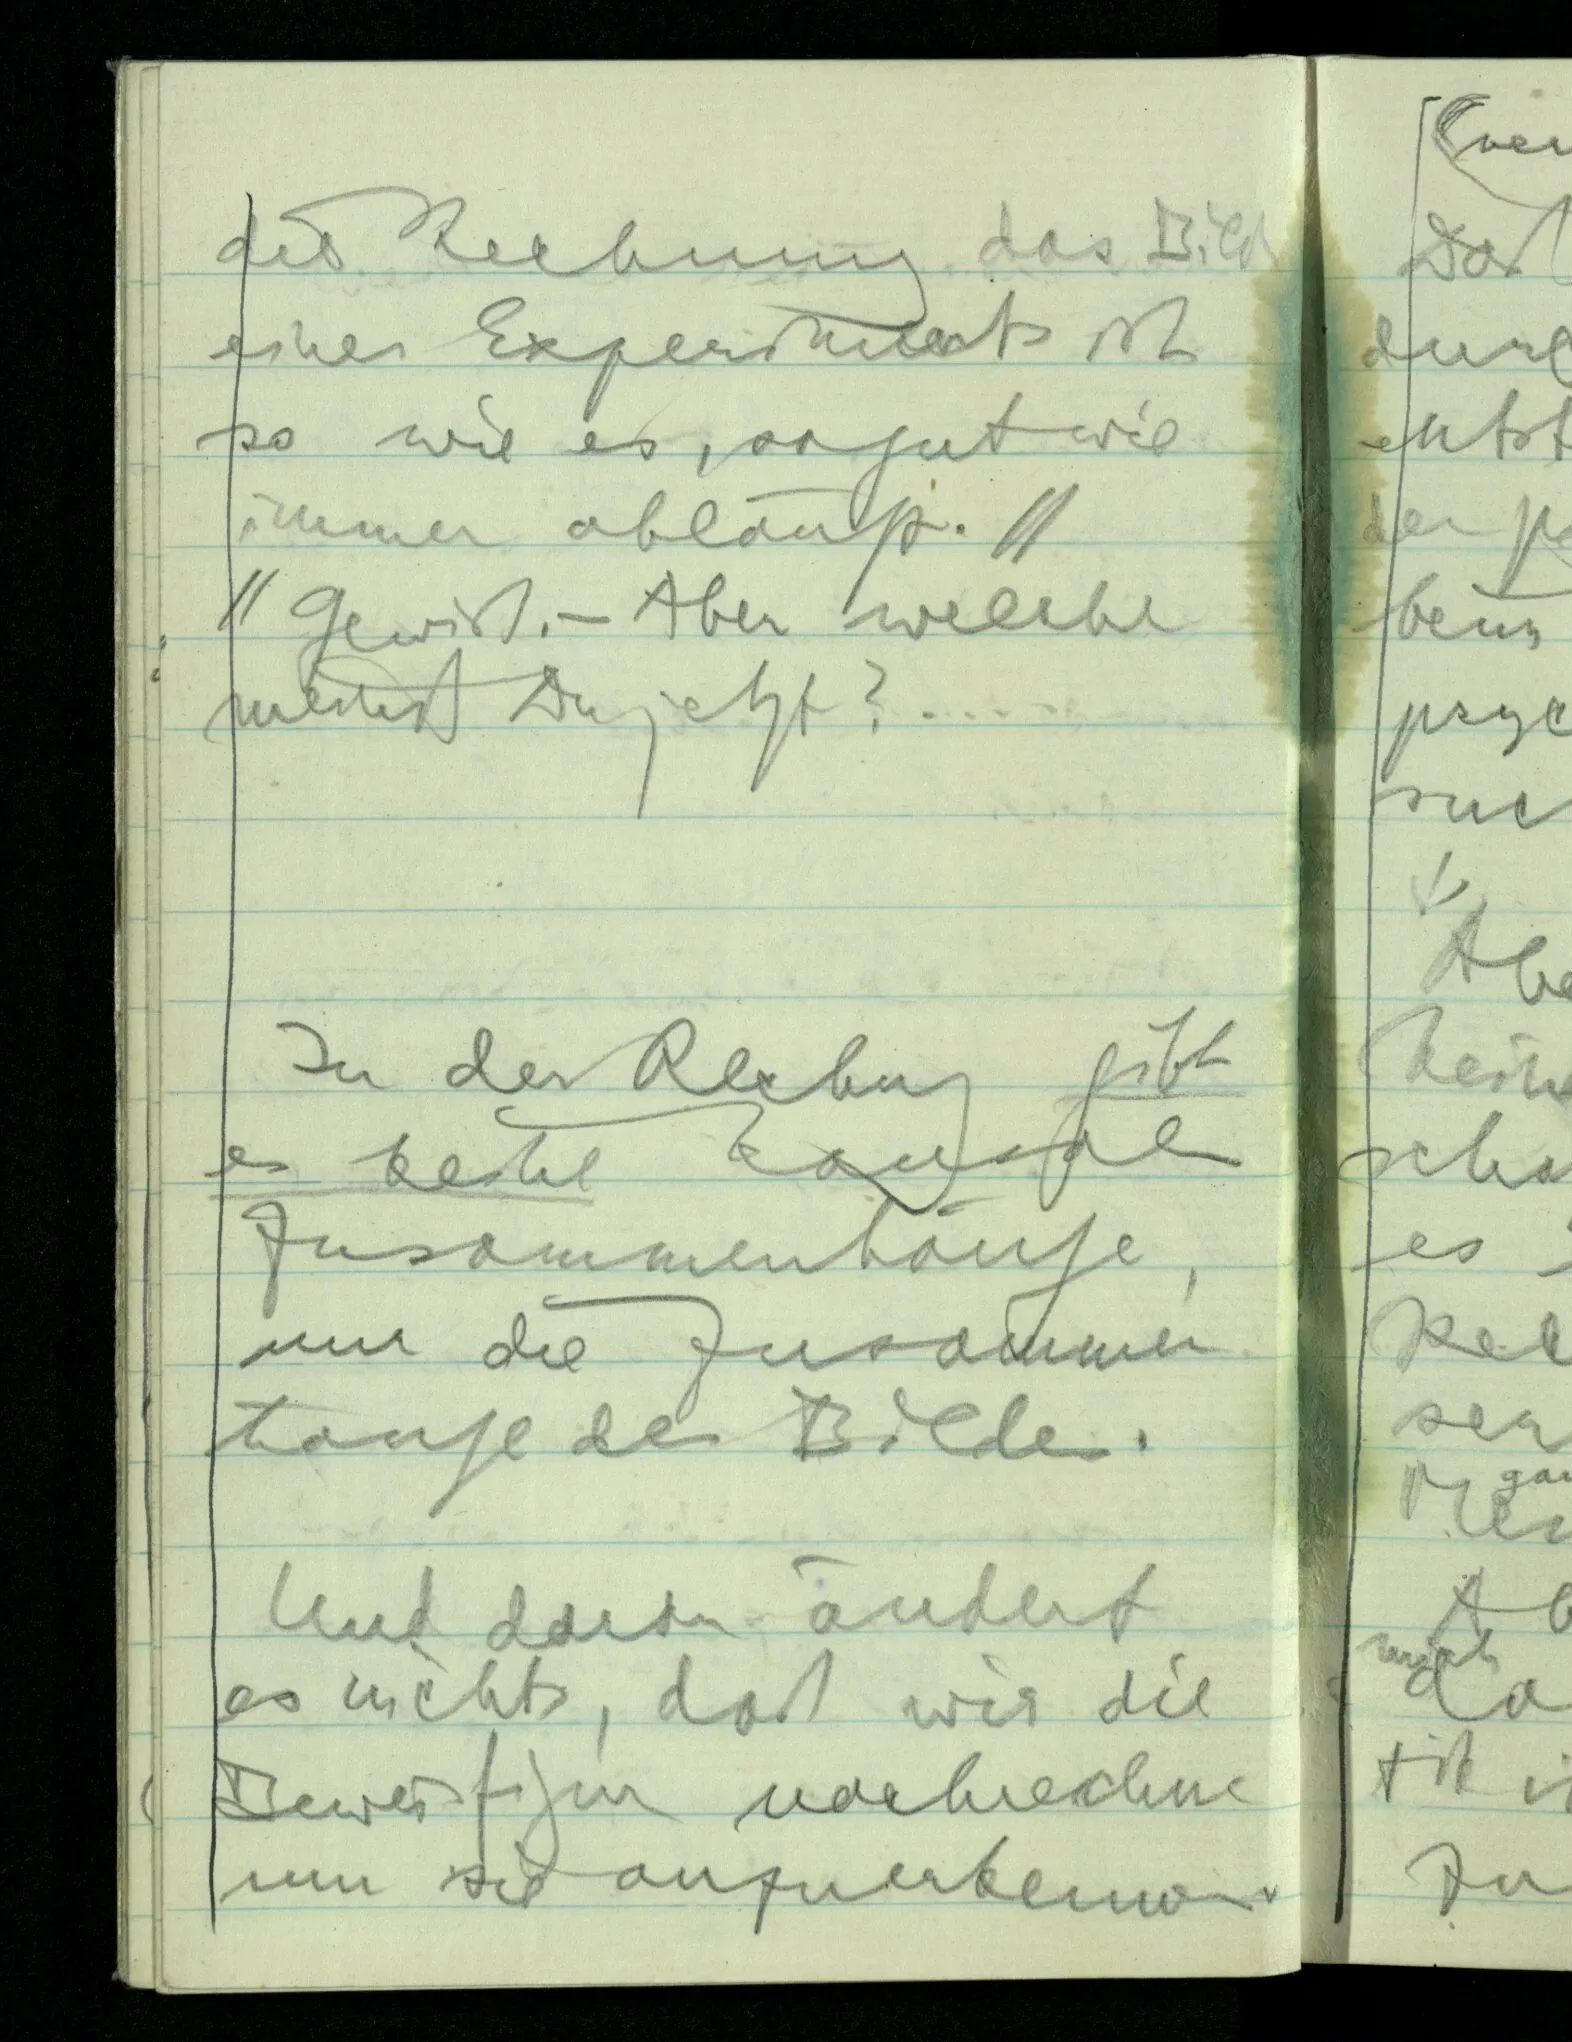 die Rechnung das Bild
eines Experiments ist
so wie es, so gut wie
immer abläuft."
"Gewiß. – Aber welche
meinst Du jetzt? .....
In der Rechnung gibt
es keine kausalen
Zusammenhänge,
nur die Zusammen
hänge des Bildes.
Und daran ändert
es nichts, daß wir die
Beweisfigur nachrechne
um sie anzuerkennen.
(ver
Daß
durc
entst
der ps
beim
psyc
suc
Abe
keine
scha
es
Kal
sen
gan
Men
Ab
mich
da
tik i
Zu